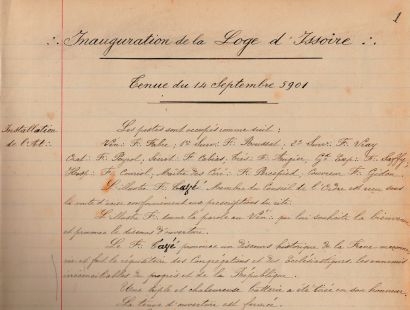 1
∴ Inauguration de la Loge d'Issoire ∴
Tenue du 14 Septembre 5901
Installation
de l'At∴
Les postes sont occupés comme suit:
Vén∴ F. Fabre; 1er Surv∴ F. Roussel, 2e Surv∴ F. Viay
Orat∴ F. Payol, Secrét∴ F. Très∴ F. Augier, Gd Exp∴ F.
Hosp∴ F. Maître des Cér∴ F. Couvreur F.
L'Illustre F∴ Cazé Membre du Conseil de l'Ordre est reçu sous
la voûte d'acier conformément aux prescriptions du rite.
L'Illustre F∴ donne la parole au Vén∴ qui lui souhaite la bienvenue
et prononce le discours d'ouverture.
Le F∴ Cazé prononce un discours historique de la Franc-maçon
et fait le des Congrégations et des Ecclésiastiques les ennemis
irréconciliables du progrès et de la République.
Une triple et chaleureuse batterie a été tirée en son honneur.
La tenue d'ouverture est fermée.